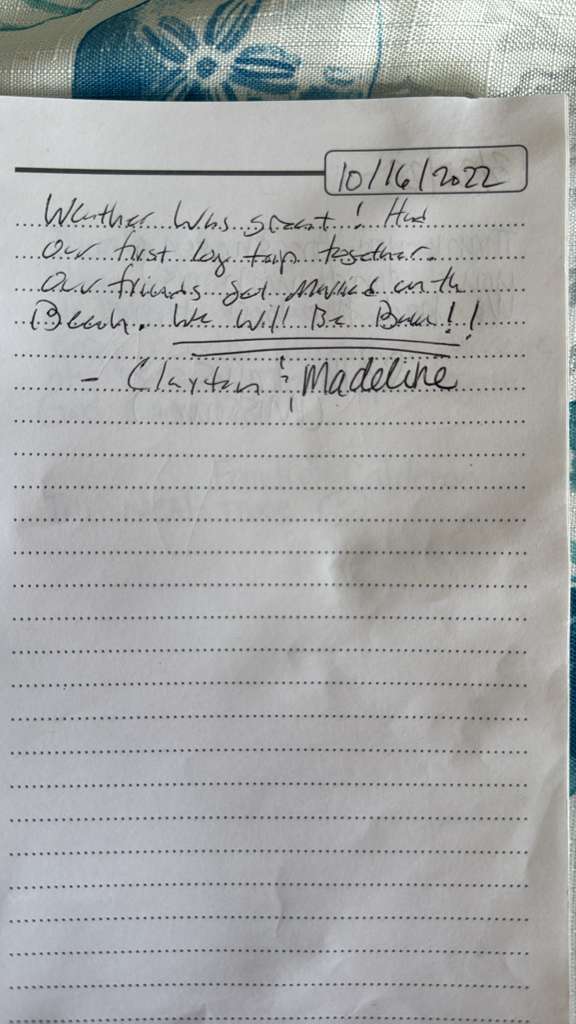 10/16/2022
Weather was great! Had
our first long trip together.
Our friends got married on the
Beach. We Will Be Back!!
- Clayton & Madeline